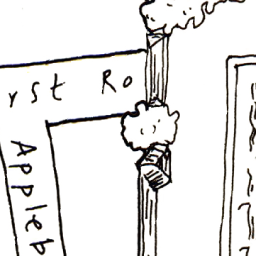 rst Ro
Appleb